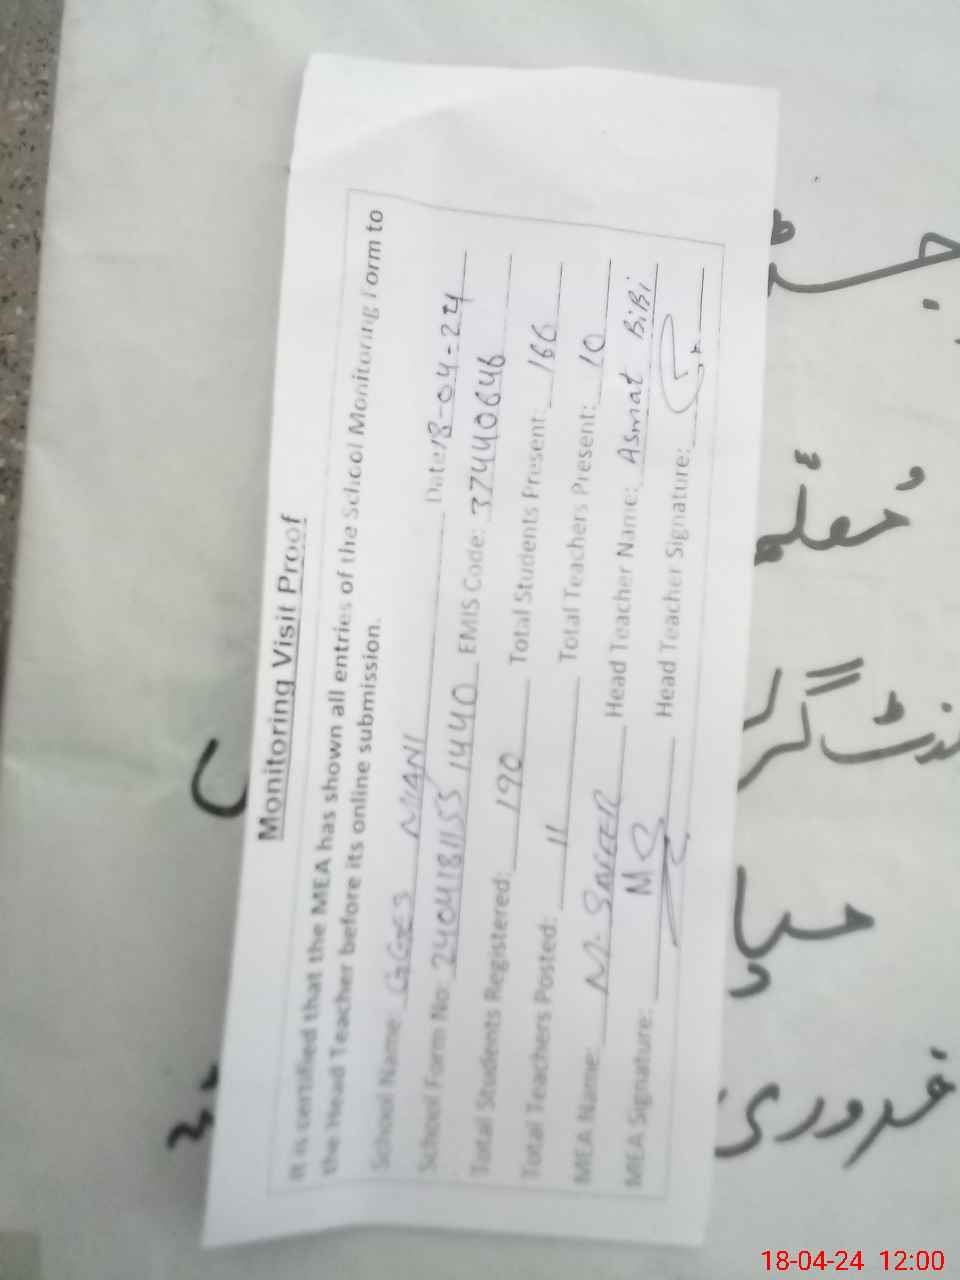 Monitoring Visit Proof
It is certified that the MEA has shown all entries of the School Monitoring Form to
the Head Teacher before its online submission.
School Name: GGES MIANI Date: 18-04-24
School Form No: 2404181155 1440 EMIS Code: 37440646
Total Students Registered: 190 Total Students Present: 166
Total Teachers Posted: 11 Total Teachers Present: 10
MEA Name: M. Head Teacher Name: Asmat BiBi
MEA Signature: Head Teacher Signature:
فروری
18-04-24 12:00